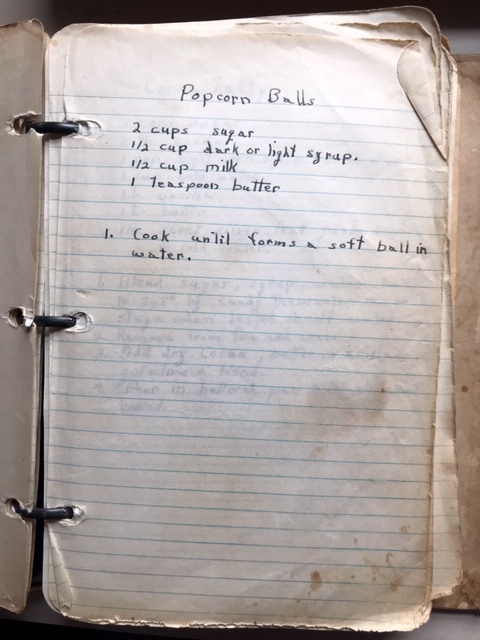 Popcorn Balls
2 cups sugar
1/2 cup dark or light syrup.
1/2 cup milk
1 teaspoon butter
1. Cook until forms a soft ball in
water.